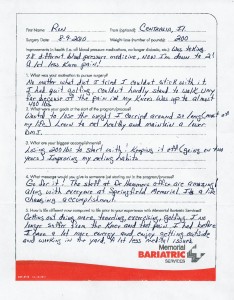 First Name: Ron Town (optional) Centralia, Il
Surgery Date: 8-9-2010 Weight loss (number of pounds) 200
Improvements in health (i.e. off blood pressure medications, no longer diabetic, etc.) Was taking
78 different blood pressure medicine, Now I'm down to 2!
A lot less Knee pain!
1. What was your motivation to pursue surgery?
No matter what diet I tried I couldn't stick with it
I had quit golfing, couldn't hardly stand to walk very
far because of the pain in my Knees was up to almost
400 lbs.
2. What were your goals at the start of the program/process?
Wanted to lose the weight I carried around so long (most of
my life) Learn to eat healthy and maintain a lower
BMI.
3. What are your biggest accomplishments?
Losing 200 lbs to start with! Keeping it off (going on two
years) Improving my eating habits
4. What message would you give to someone just starting out in the program/process?
Go for it! The staff at Dr office are amazing
along with everyone at Springfield Memorial. It's a life
changing accomplishment.
5. How is life different now compared to life prior to your experience with Memorial Bariatric Services?
Getting out doing more, traveling, exercising, golfing. I no
longer suffer from the Knee and feet pain I had before
I have a lot more energy and enjoy getting outside
and working in the yard. A lot less medical issues
Memorial
BARIATRIC
SERVICES